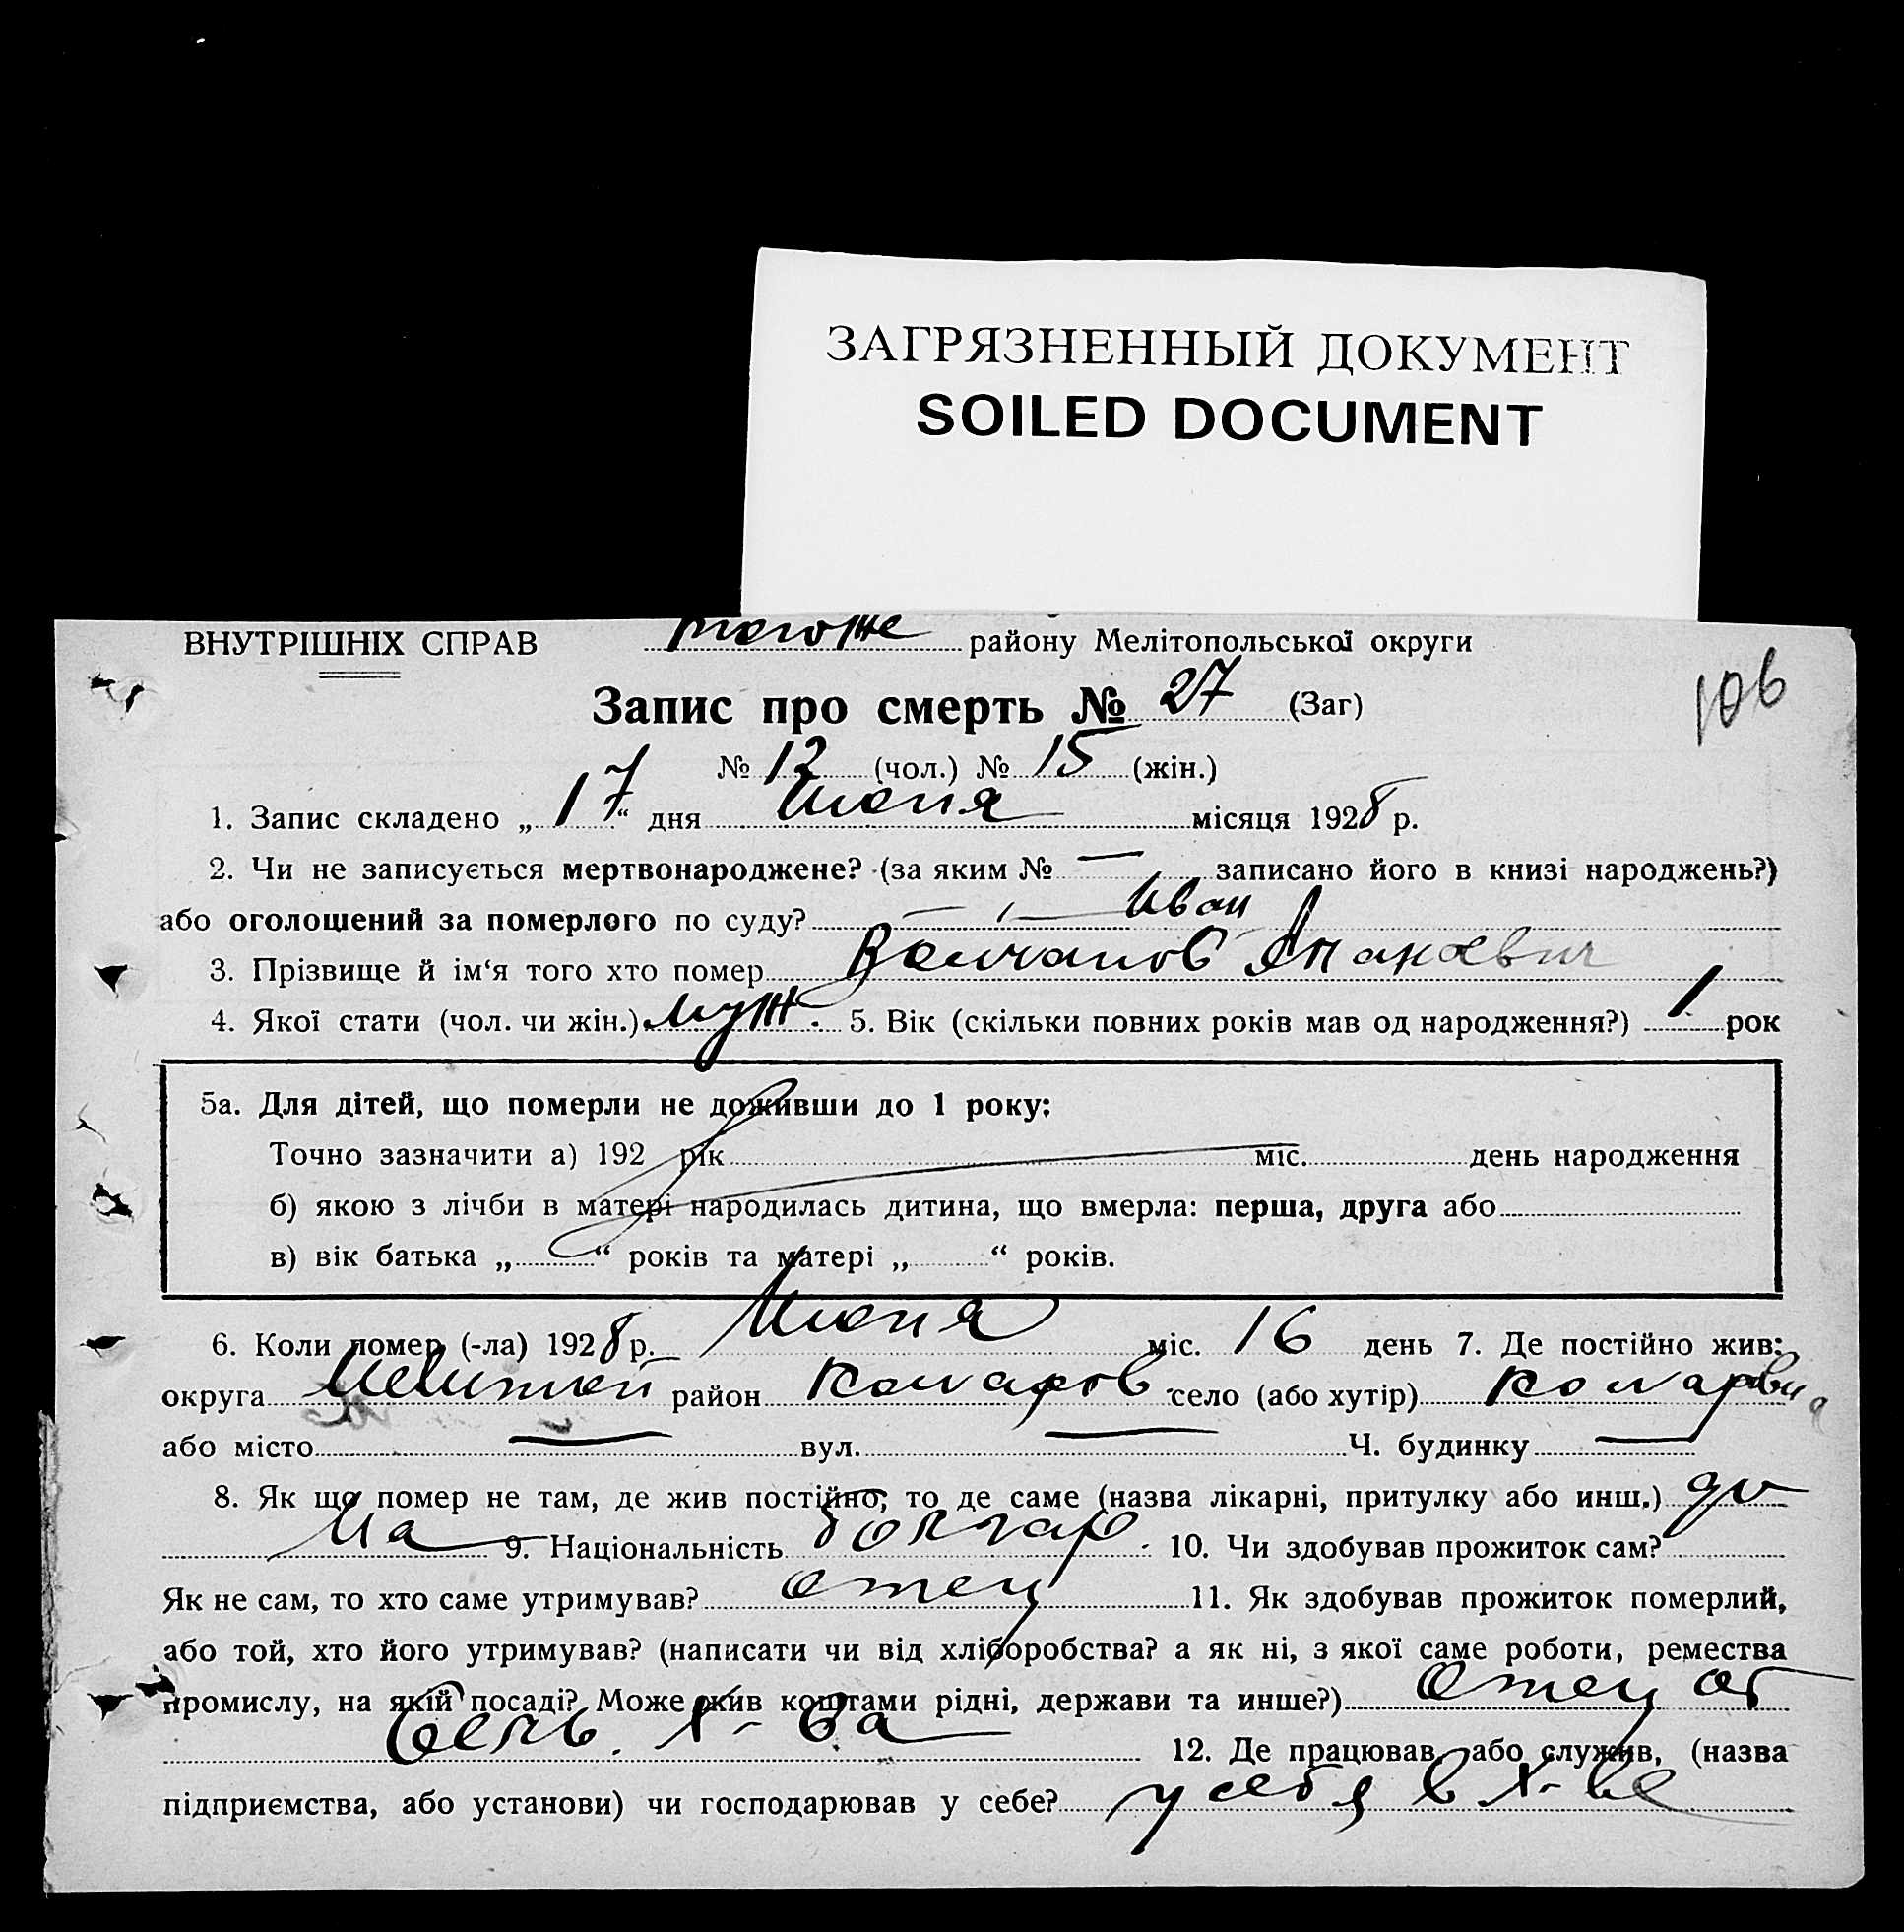 ЗАГРЯЗНЕННЫЙ ДОКУМЕНТ
SOILED DOCUMENT
ВНУТРІШНІХ СПРАВ тогоже району Мелітопольської округи
106
Запис про смерть № 27 (Заг)
№ 12 (чол.) № 15 (жін.)
1. Запис складено „ 17 “ дня Июня місяця 1928 р.
2. Чи не записується мертвонароджене? (за яким № — записано його в книзі народжень?)
або оголошений за померлого по суду? — Иван
3. Прізвище й ім‘я того хто помер Волчанов
4. Якої стати (чол. чи жін.) муж. 5. Вік (скільки повних років мав од народження?) 1 рок
5а. Для дітей, що померли не доживши до 1 року:
Точно зазначити а) 192 рік міс. день народження
б) якою з лічби в матері народилась дитина, що вмерла: перша, друга або
в) вік батька „ “ років та матері „ “ років.
6. Коли помер (-ла) 1928 р. Июня міс. 16 день 7. Де постійно жив:
округа район село (або хутір)
або місто — вул. — Ч. будинку —
8. Як що помер не там, де жив постійно, то де саме (назва лікарні, притулку або инш.) до
ма 9. Національність болгар. 10. Чи здобував прожиток сам?
Як не сам, то хто саме утримував? отец 11. Як здобував прожиток померлий,
або той, хто його утримував? (написати чи від хліборобства? а як ні, з якої саме роботи, ремества
промислу, на якій посаді? Може жив коштами рідні, держави та инше?) Отец от
сель. х-ва 12. Де працював, або служив, (назва
підприємства, або установи) чи господарював у себе? у себя в х-ве